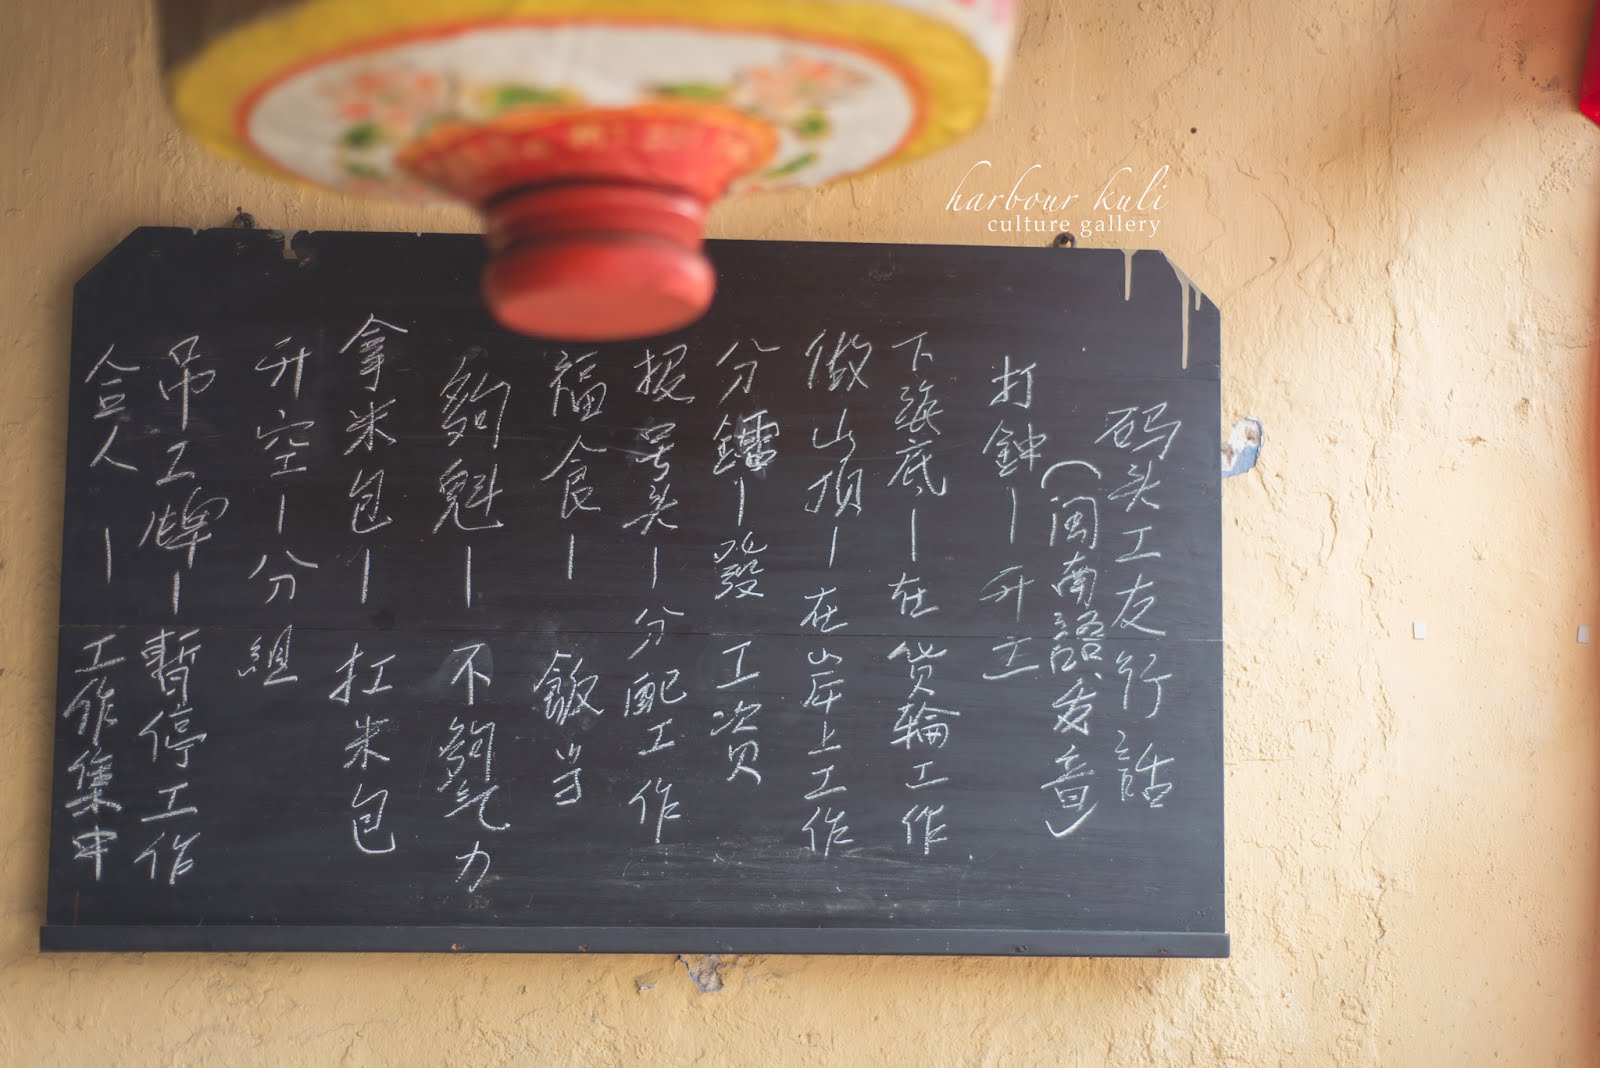 harbour kuli
culture gallery
码头工友行話
(闽南語发音)
打鈡—升工
下海底—在货輪工作
做山顶—在山岸上工作
分鐳—發工资
招号头—分配工作
福食—飯当
夠魁—不夠气力
拿米包—扛米包
升空—分組
吊工牌—暫停工作
合人—工作集中